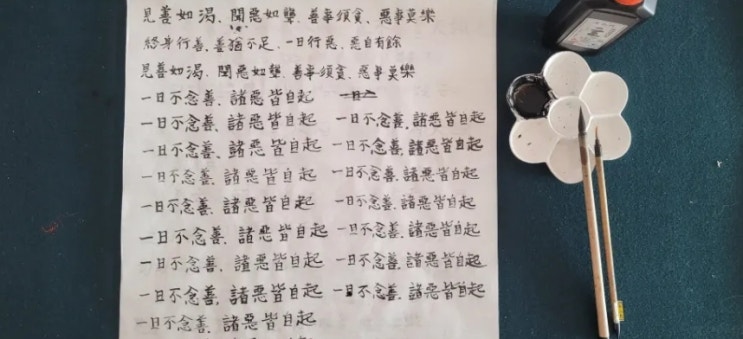 見善如渴，聞惡如聾，善事須貪，惡事莫樂
終身行善，善猶不足，一日行惡，惡自有餘
見善如渴，聞惡如聾，善事須貪，惡事莫樂
一日不念善，諸惡皆自起
一日不念善，諸惡皆自起 一日不念善，諸惡皆自起
一日不念善，諸惡皆自起 一日不念善，諸惡皆自起
一日不念善，諸惡皆自起 一日不念善，諸惡皆自起
一日不念善，諸惡皆自起 一日不念善，諸惡皆自起
一日不念善，諸惡皆自起 一日不念善，諸惡皆自起
一日不念善，諸惡皆自起 一日不念善，諸惡皆自起
一日不念善，諸惡皆自起 一日不念善，諸惡皆自起
一日不念善，諸惡皆自起